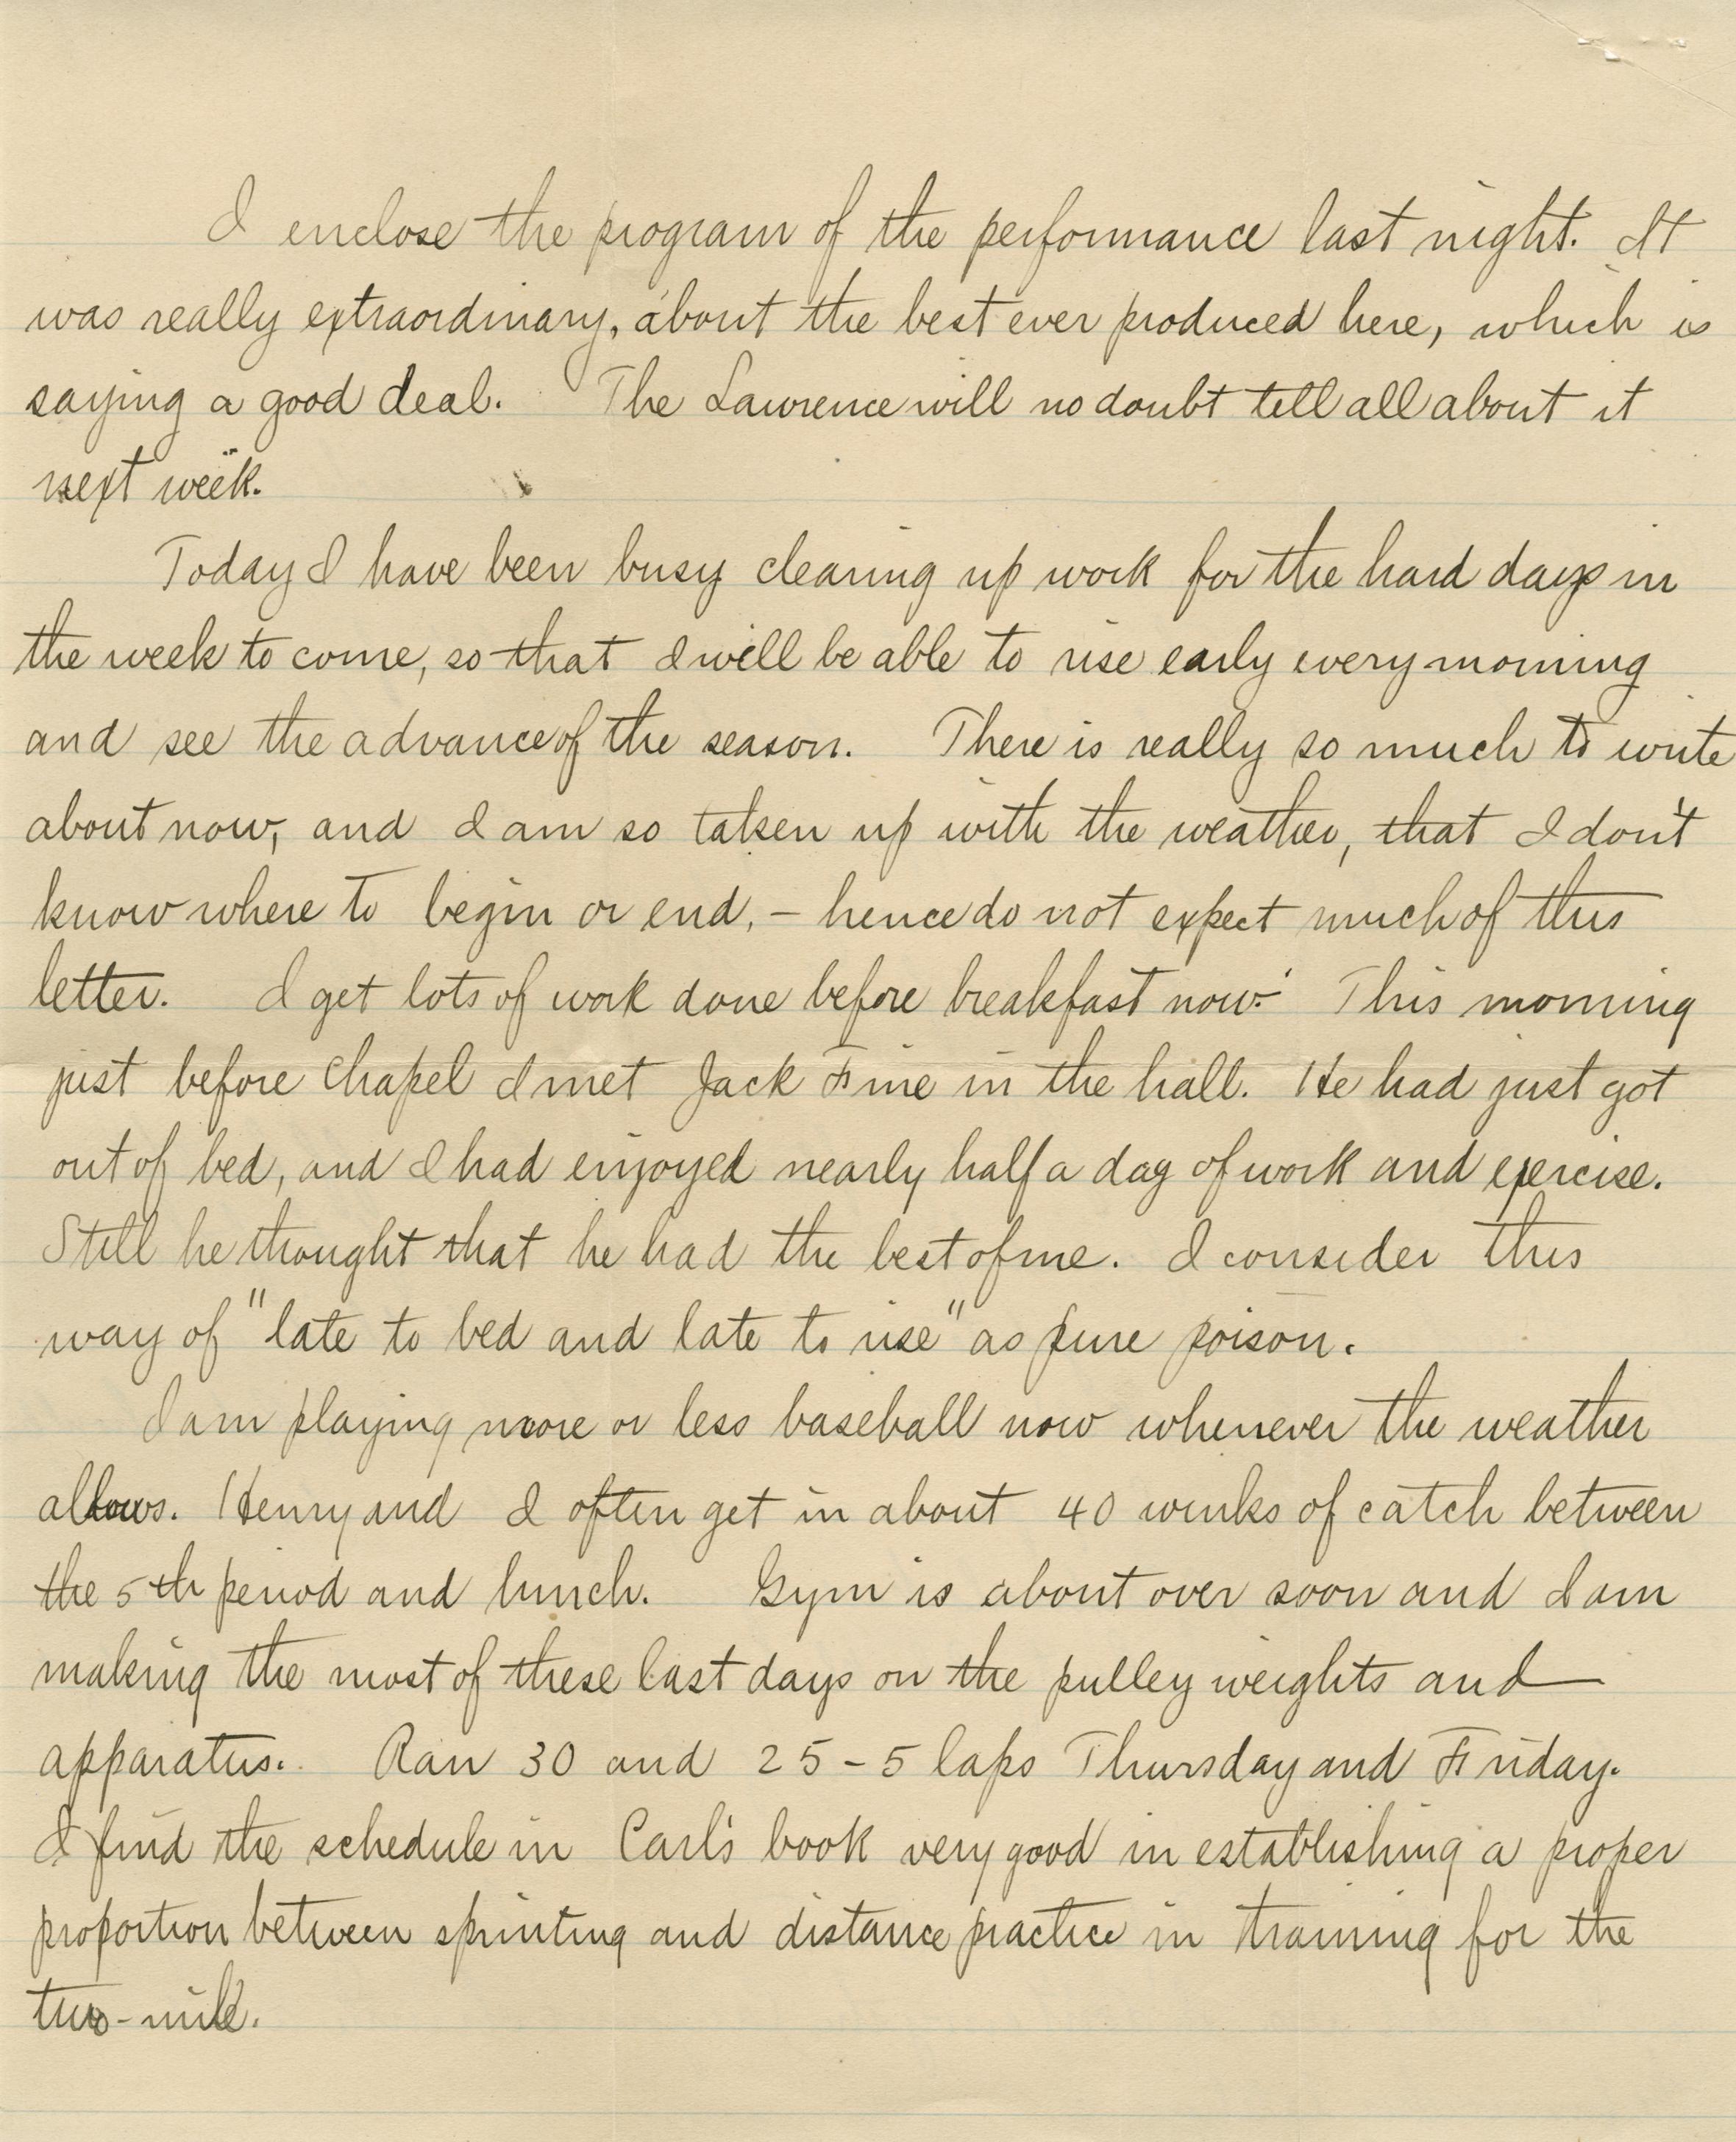 I enclose the program of the performance last night. It
was really extraordinary, about the best ever produced here, which is
saying a good deal. The Lawrence will no doubt tell all about it
next week.
Today I have been busy clearing up work for the hard days in
the week to come, so that I will be able to rise early every morning
and see the advance of the season. There is really so much to write
about now, and I am so taken up with the weather, that I don't
know where to begin or end, - hence do not expect much of this
letter. I get lots of work done before breakfast now. This morning
just before chapel I met Jack Fine in the hall. He had just got
out of bed, and I had enjoyed nearly half a day of work and exercise.
Still he thought that he had the best of me. I consider this
way of "late to bed and late to rise" as pure poison.
I am playing more or less baseball now whenever the weather
allows. Henry and I often get in about 40 winks of catch between
the 5th period and lunch. Gym is about over soon and I am
making the most of these last days on the pulley weights and
apparatus. Ran 30 and 25-5 laps Thursday and Friday.
I find the schedule in Carl's book very good in establishing a proper
proportion between sprinting and distance practice in training for the
two-mile.